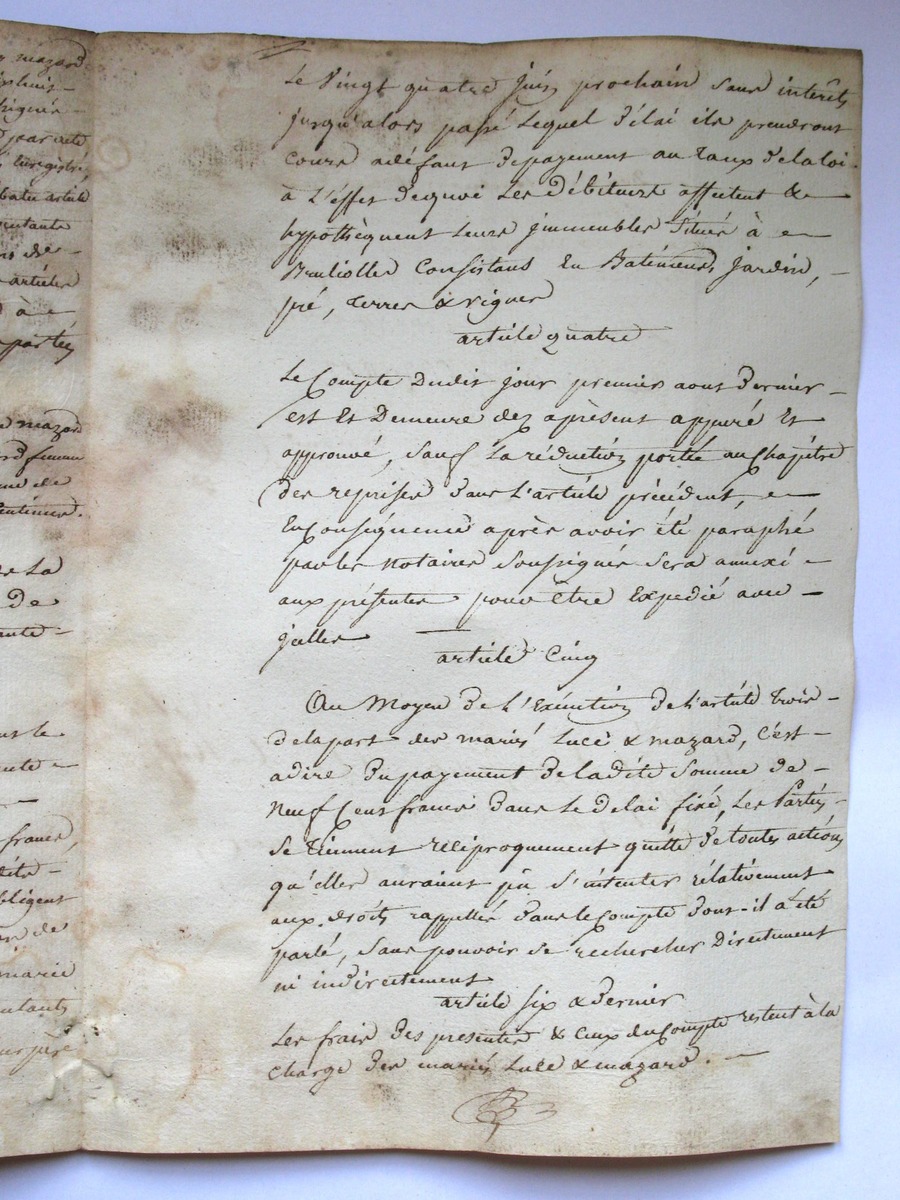 mazard
signés
par acte
enregistré,
article
de
article
à
parties
mazard
femme
de
centimes.
La
de
le
francs,
dite
obligent
de
marié
Le Vingt quatre juin prochain sans intérêts
jusqu'alors passé Lequel délai ils prendront
cours adéfaut depayement au taux delaloi.
à L'effet dequoi Les Débiteurs affectent &
hypothèquent Leurs jmmeubles Situés à
Consistans En Batimens, Jardin,
pré, terres & vignes
article quatre
Le Compte Dudit jour premier aout Dernier
est Et Demeure dez àprésent appuré Et
approuvé, Sauf La réduction portée auChapitre
Des reprises Dans L'article précédent,
EnConséquence après avoir été paraphé
par les Notaires Soussignés Sera annexé
aux présentes pour Etre Expedié avec
jcelles
article Cinq
Au Moyen De L'Exécution De l'article Trois
delapart des mariés Lucé & mazard, C'est
adire Du payement De ladite Somme de
Neuf Cens francs Dans Le delai fixé, Les Parties
Se Tiennent réciproquement quitte De toutes actions
qu'elles auraient pu S'intenter rélativement
aux Droits rappellés Dans le Compte Dont-il a été
parlé, Sans pouvoir Se rechercher Directement
ni indirectement
article Six & Dernier
Les frais Des presentes & Ceux du Compte restent à la
Charge Des mariés Lucé & mazard.